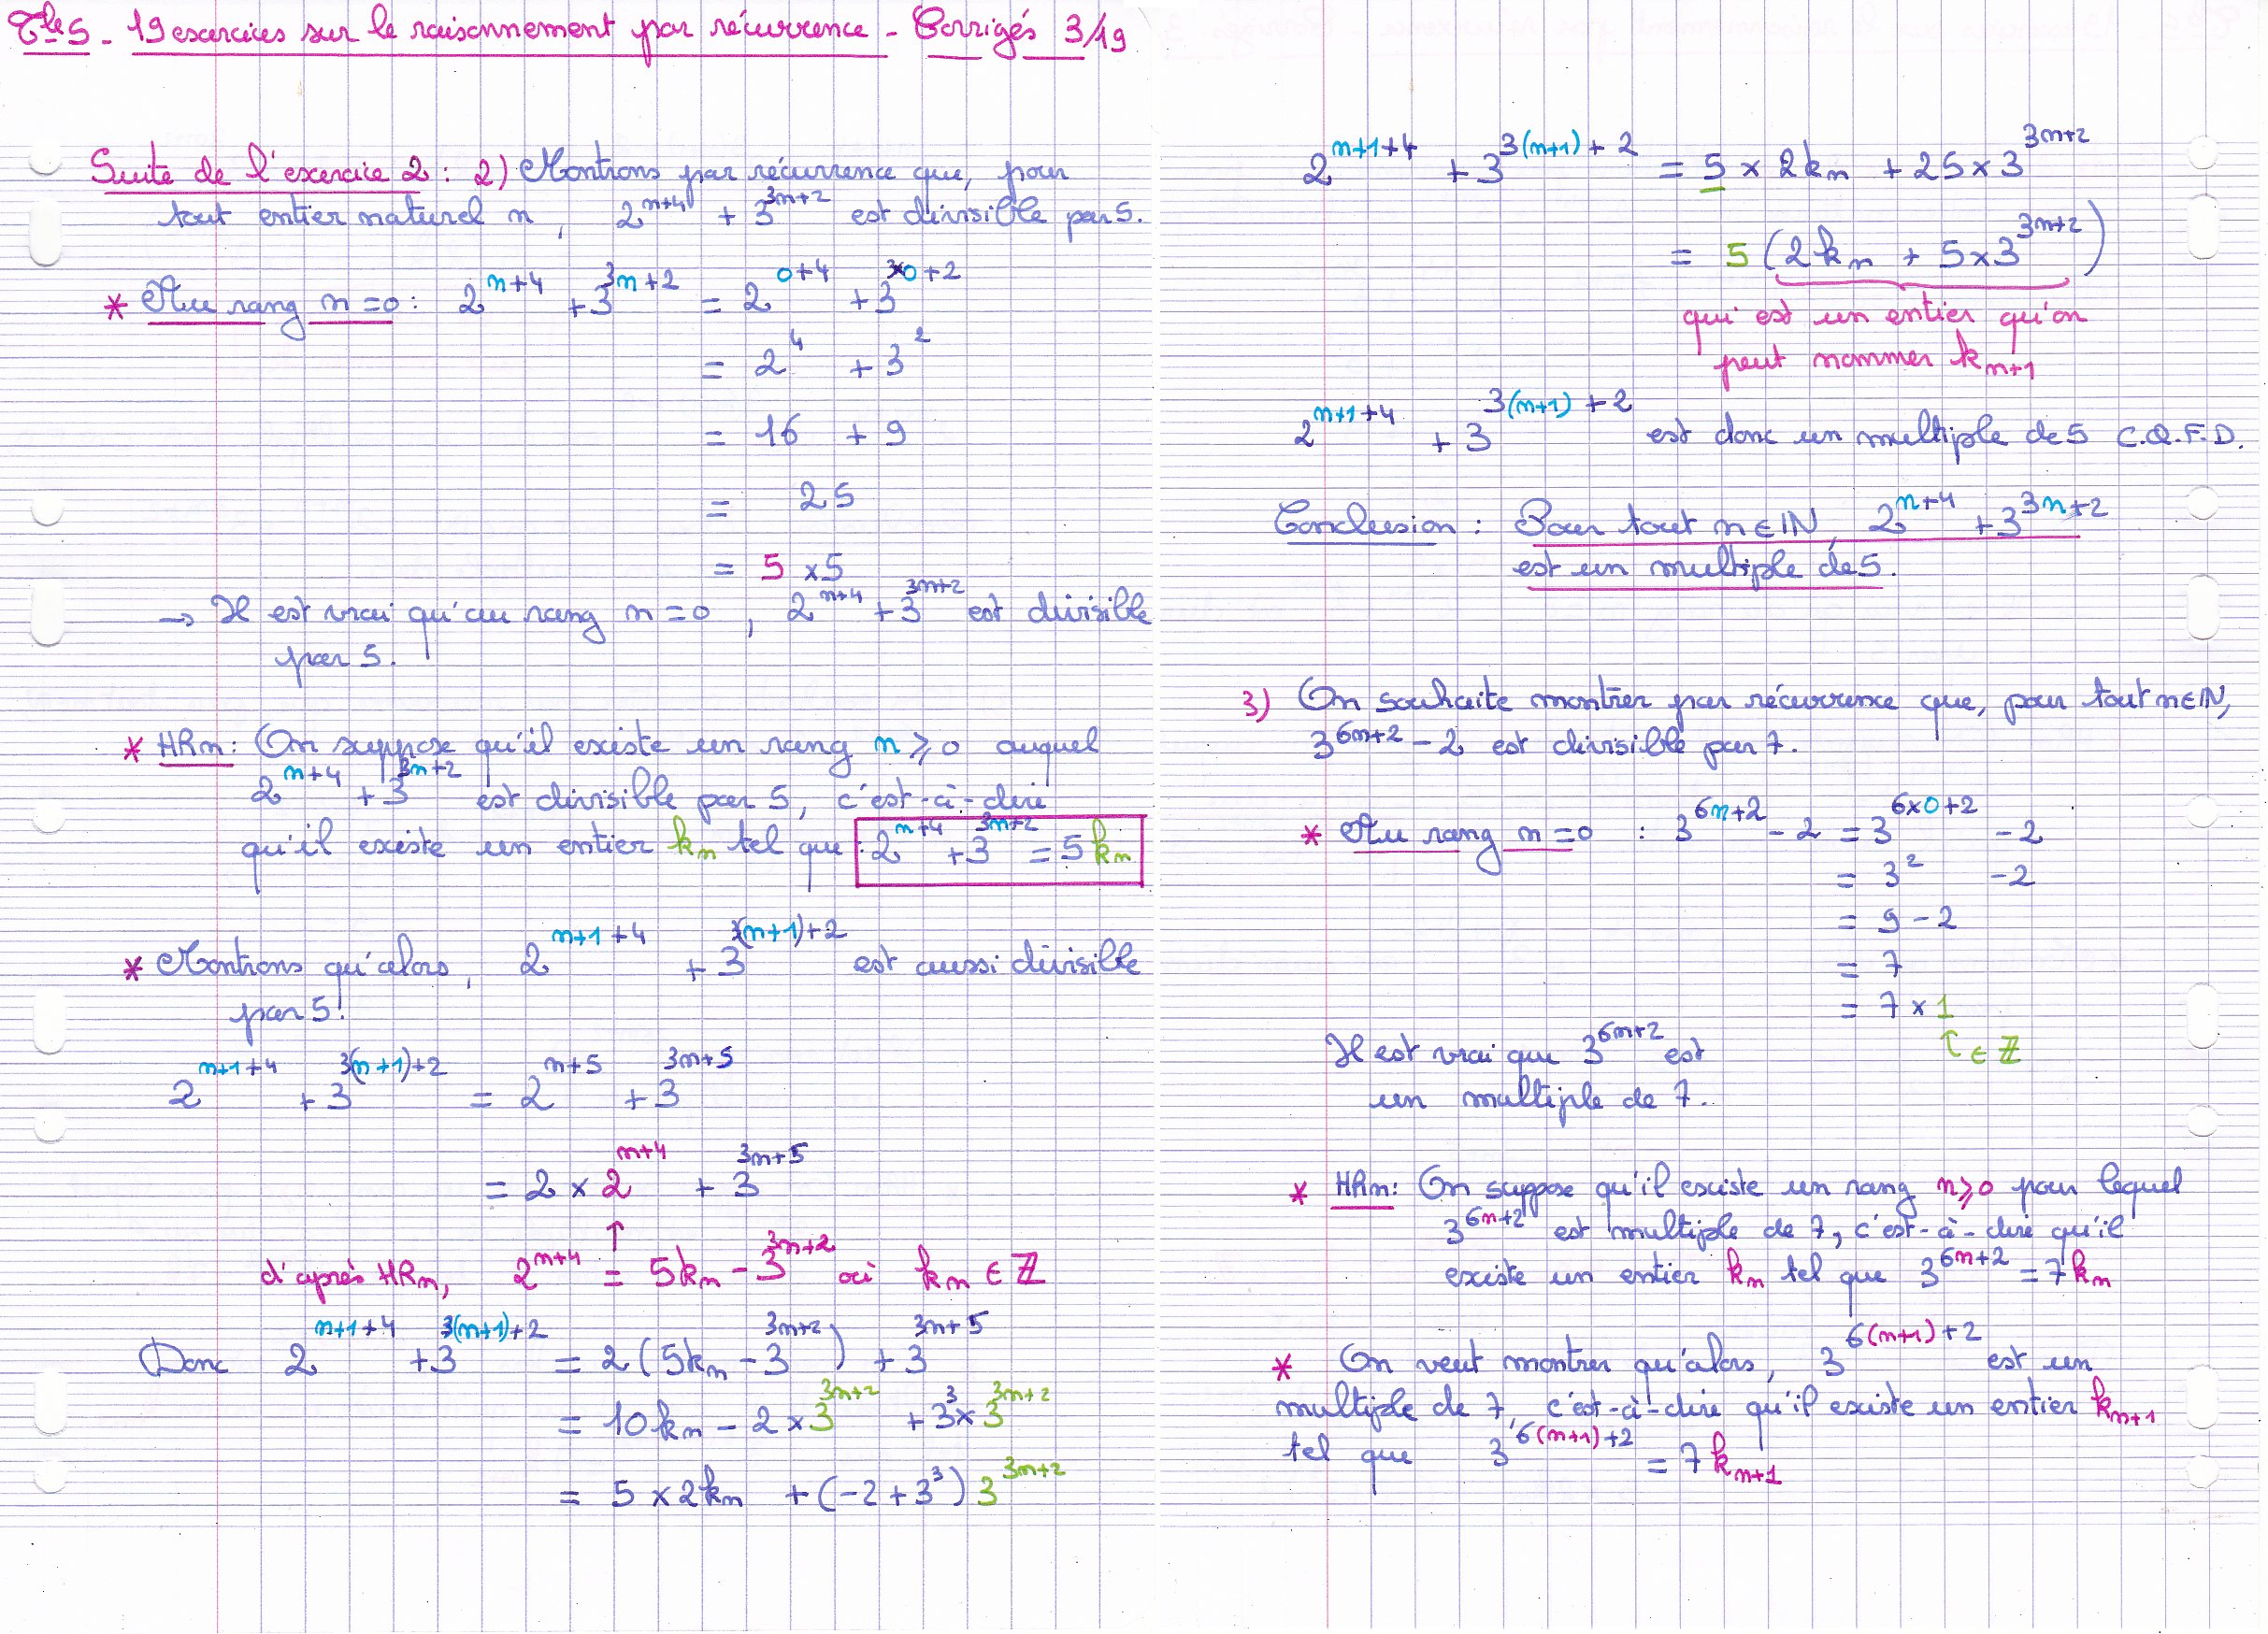 Tle S - 19 exercices sur le raisonnement par récurrence - Corrigés 3/19
Suite de l'exercice 2 : 2) Montrons par récurrence que, pour
tout entier naturel n, 2^{n+4} + 3^{3n+2} est divisible par 5.
* Au rang n=0 : 2^{n+4} + 3^{3n+2} = 2^{0+4} + 3^{3×0+2}
= 2^4 + 3^2
= 16 + 9
= 25
= 5 × 5
→ Il est vrai qu'au rang n=0, 2^{n+4} + 3^{3n+2} est divisible
par 5.
* HRn : On suppose qu'il existe un rang n ⩾ 0 auquel
2^{n+4} + 3^{3n+2} est divisible par 5, c'est-à-dire
qu'il existe un entier k_n tel que : 2^{n+4} + 3^{3n+2} = 5k_n
* Montrons qu'alors, 2^{n+1+4} + 3^{3(n+1)+2} est aussi divisible
par 5!
2^{n+1+4} + 3^{3(n+1)+2} = 2^{n+5} + 3^{3n+5}
= 2 × 2^{n+4} + 3^{3n+5}
↑
d'après HRn, 2^{n+4} = 5k_n - 3^{3n+2} où k_n ∈ ℤ
Donc 2^{n+1+4} + 3^{3(n+1)+2} = 2(5k_n - 3^{3n+2}) + 3^{3n+5}
= 10k_n - 2 × 3^{3n+2} + 3^3 × 3^{3n+2}
= 5 × 2k_n + (-2 + 3^3) 3^{3n+2}
2^{n+1+4} + 3^{3(n+1)+2} = 5 × 2k_n + 25 × 3^{3n+2}
= 5 (2k_n + 5 × 3^{3n+2})
qui est un entier qu'on
peut nommer k_{n+1}
2^{n+1+4} + 3^{3(n+1)+2} est donc un multiple de 5 C.Q.F.D.
Conclusion : Pour tout n ∈ IN, 2^{n+4} + 3^{3n+2}
est un multiple de 5.
3) On souhaite montrer par récurrence que, pour tout n ∈ IN,
3^{6n+2} - 2 est divisible par 7.
* Au rang n=0 : 3^{6n+2} - 2 = 3^{6×0+2} - 2
= 3^2 - 2
= 9 - 2
= 7
= 7 × 1
↑ ∈ ℤ
Il est vrai que 3^{6n+2} est
un multiple de 7.
* HRn : On suppose qu'il existe un rang n ⩾ 0 pour lequel
3^{6n+2} est multiple de 7, c'est-à-dire qu'il
existe un entier k_n tel que 3^{6n+2} = 7k_n
* On veut montrer qu'alors, 3^{6(n+1)+2} est un
multiple de 7, c'est-à-dire qu'il existe un entier k_{n+1}
tel que 3^{6(n+1)+2} = 7k_{n+1}